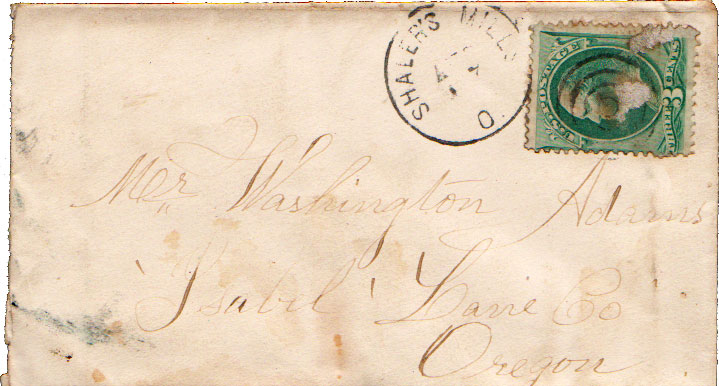 SHALER'S MILLS
O.
U.S. POSTAGE
3
Mr. Washington Adams
"Isabil" Lane Co
Oregon